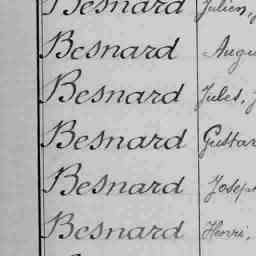 Besnard Julien,
Besnard Augu
Besnard Jules, J
Besnard Gustav
Besnard Joseph
Besnard Henri,